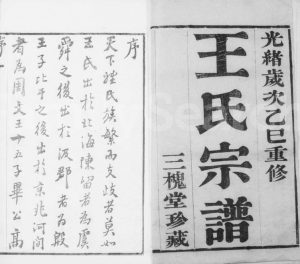 光緒歲次乙巳重修
王氏宗譜
三槐堂珍藏
序
天下種民族繁而支歧者莫如
王氏出於北海陳留者為虞
舜之後出於汲郡者為殷
王子比干之後出於京兆河間
者為周文王十五子畢公高
序一